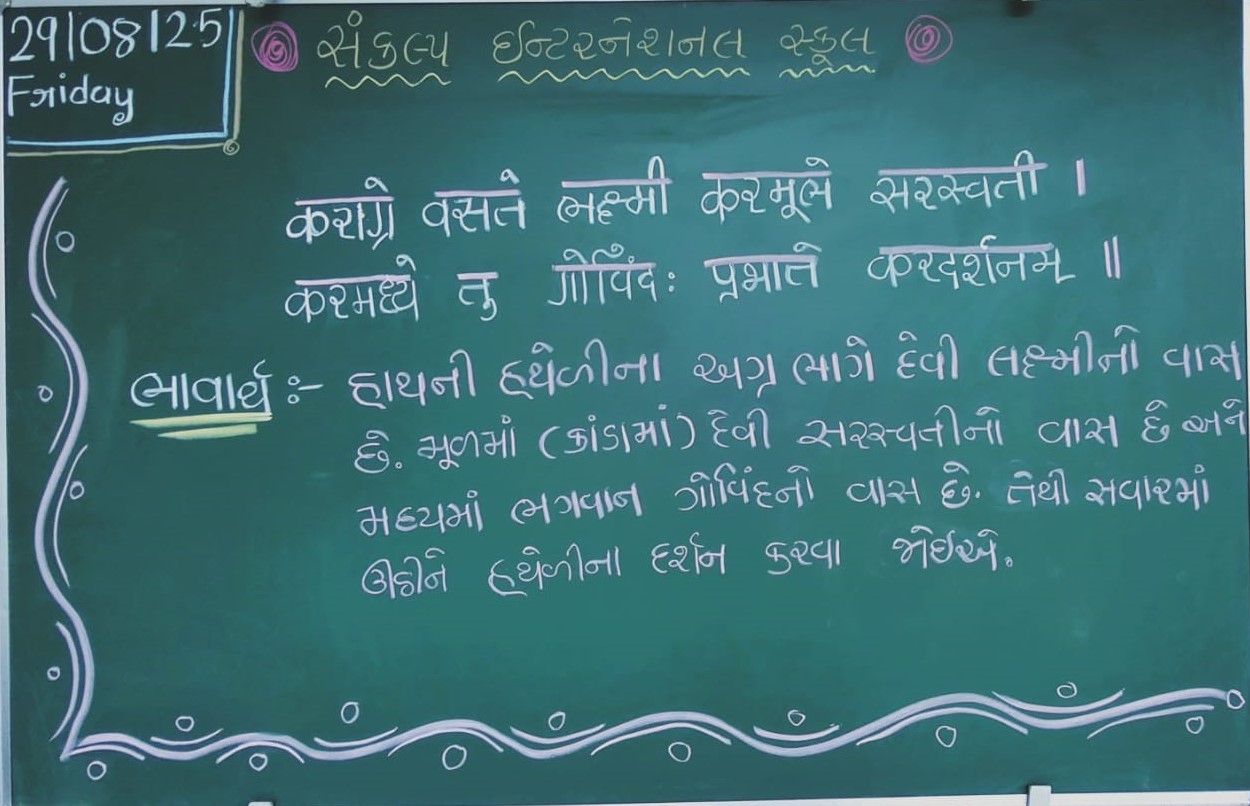 29/08/25
Friday
સંકલ્પ ઈન્ટરનેશનલ સ્કૂલ
कराग्रे वसते लक्ष्मी करमूले सरस्वती ।
करमध्ये तु गोविंदः प्रभाते करदर्शनम् ॥
ભાવાર્થ :- હાથની હથેળીના અગ્ર ભાગે દેવી લક્ષ્મીનો વાસ
છે. મૂળમાં (કાંડામાં) દેવી સરસ્વતીનો વાસ છે અને
મધ્યમાં ભગવાન ગોવિંદનો વાસ છે. તેથી સવારમાં
ઊઠીને હથેળીના દર્શન કરવા જોઈએ.